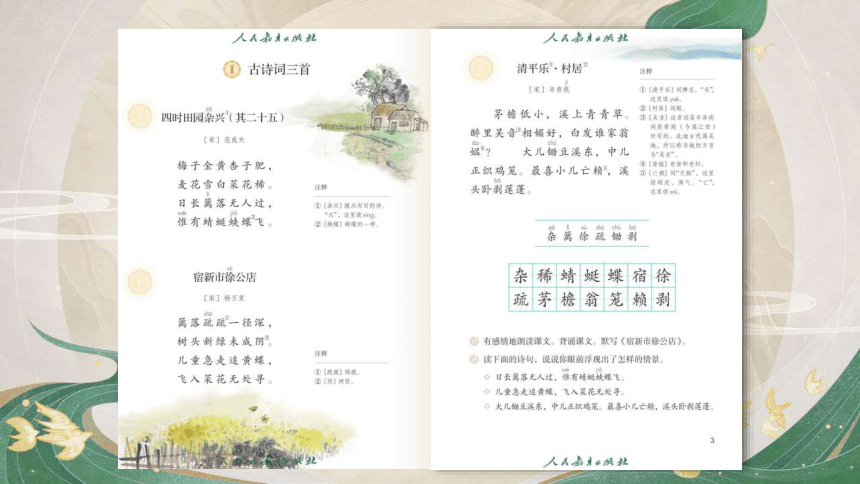 人民教育出版社
1 古诗词三首
zá
四时田园杂兴①(其二十五)
[宋] 范成大
梅子金黄杏子肥，
麦花雪白菜花稀。
lí
日长篱落无人过，
wéi jiá
惟有蜻蜓蛱蝶②飞。
注释
①〔杂兴〕随兴而写的诗。
“兴”，这里读xìng。
②〔蛱蝶〕蝴蝶的一种。
xú
宿新市徐公店
[宋] 杨万里
shū
篱落疏疏①一径深，
树头新绿未成阴②。
儿童急走追黄蝶，
飞入菜花无处寻。
注释
①〔疏疏〕稀疏。
②〔阴〕树荫。
2
人民教育出版社
人民教育出版社
清平乐①·村居②
jí
[宋] 辛弃疾
茅檐低小，溪上青青草。
醉里吴音③相媚好，白发谁家翁
ǎo chú
媪④？ 大儿锄豆溪东，中儿
正织鸡笼。最喜小儿亡赖⑤，溪
bō
头卧剥莲蓬。
注释
①〔清平乐〕词牌名。“乐”，
这里读yuè。
②〔村居〕词题。
③〔吴音〕这首词是辛弃疾
闲居带湖（今属江西）
时写的。此地古代属吴
地，所以称当地的方言
为“吴音”。
④〔翁媪〕老翁和老妇。
⑤〔亡赖〕同“无赖”，这里
指顽皮、淘气。“亡”，
这里读wú。
zá lí xú shū chú bō
杂 篱 徐 疏 锄 剥
杂 稀 蜻 蜓 蝶 宿 徐
疏 茅 檐 翁 笼 赖 剥
有感情地朗读课文。背诵课文。默写《宿新市徐公店》。
读下面的诗句，说说你眼前浮现出了怎样的情景。
wéi jiá
◇ 日长篱落无人过，惟有蜻蜓蛱蝶飞。
◇ 儿童急走追黄蝶，飞入菜花无处寻。
◇ 大儿锄豆溪东，中儿正织鸡笼。最喜小儿亡赖，溪头卧剥莲蓬。
3
人民教育出版社